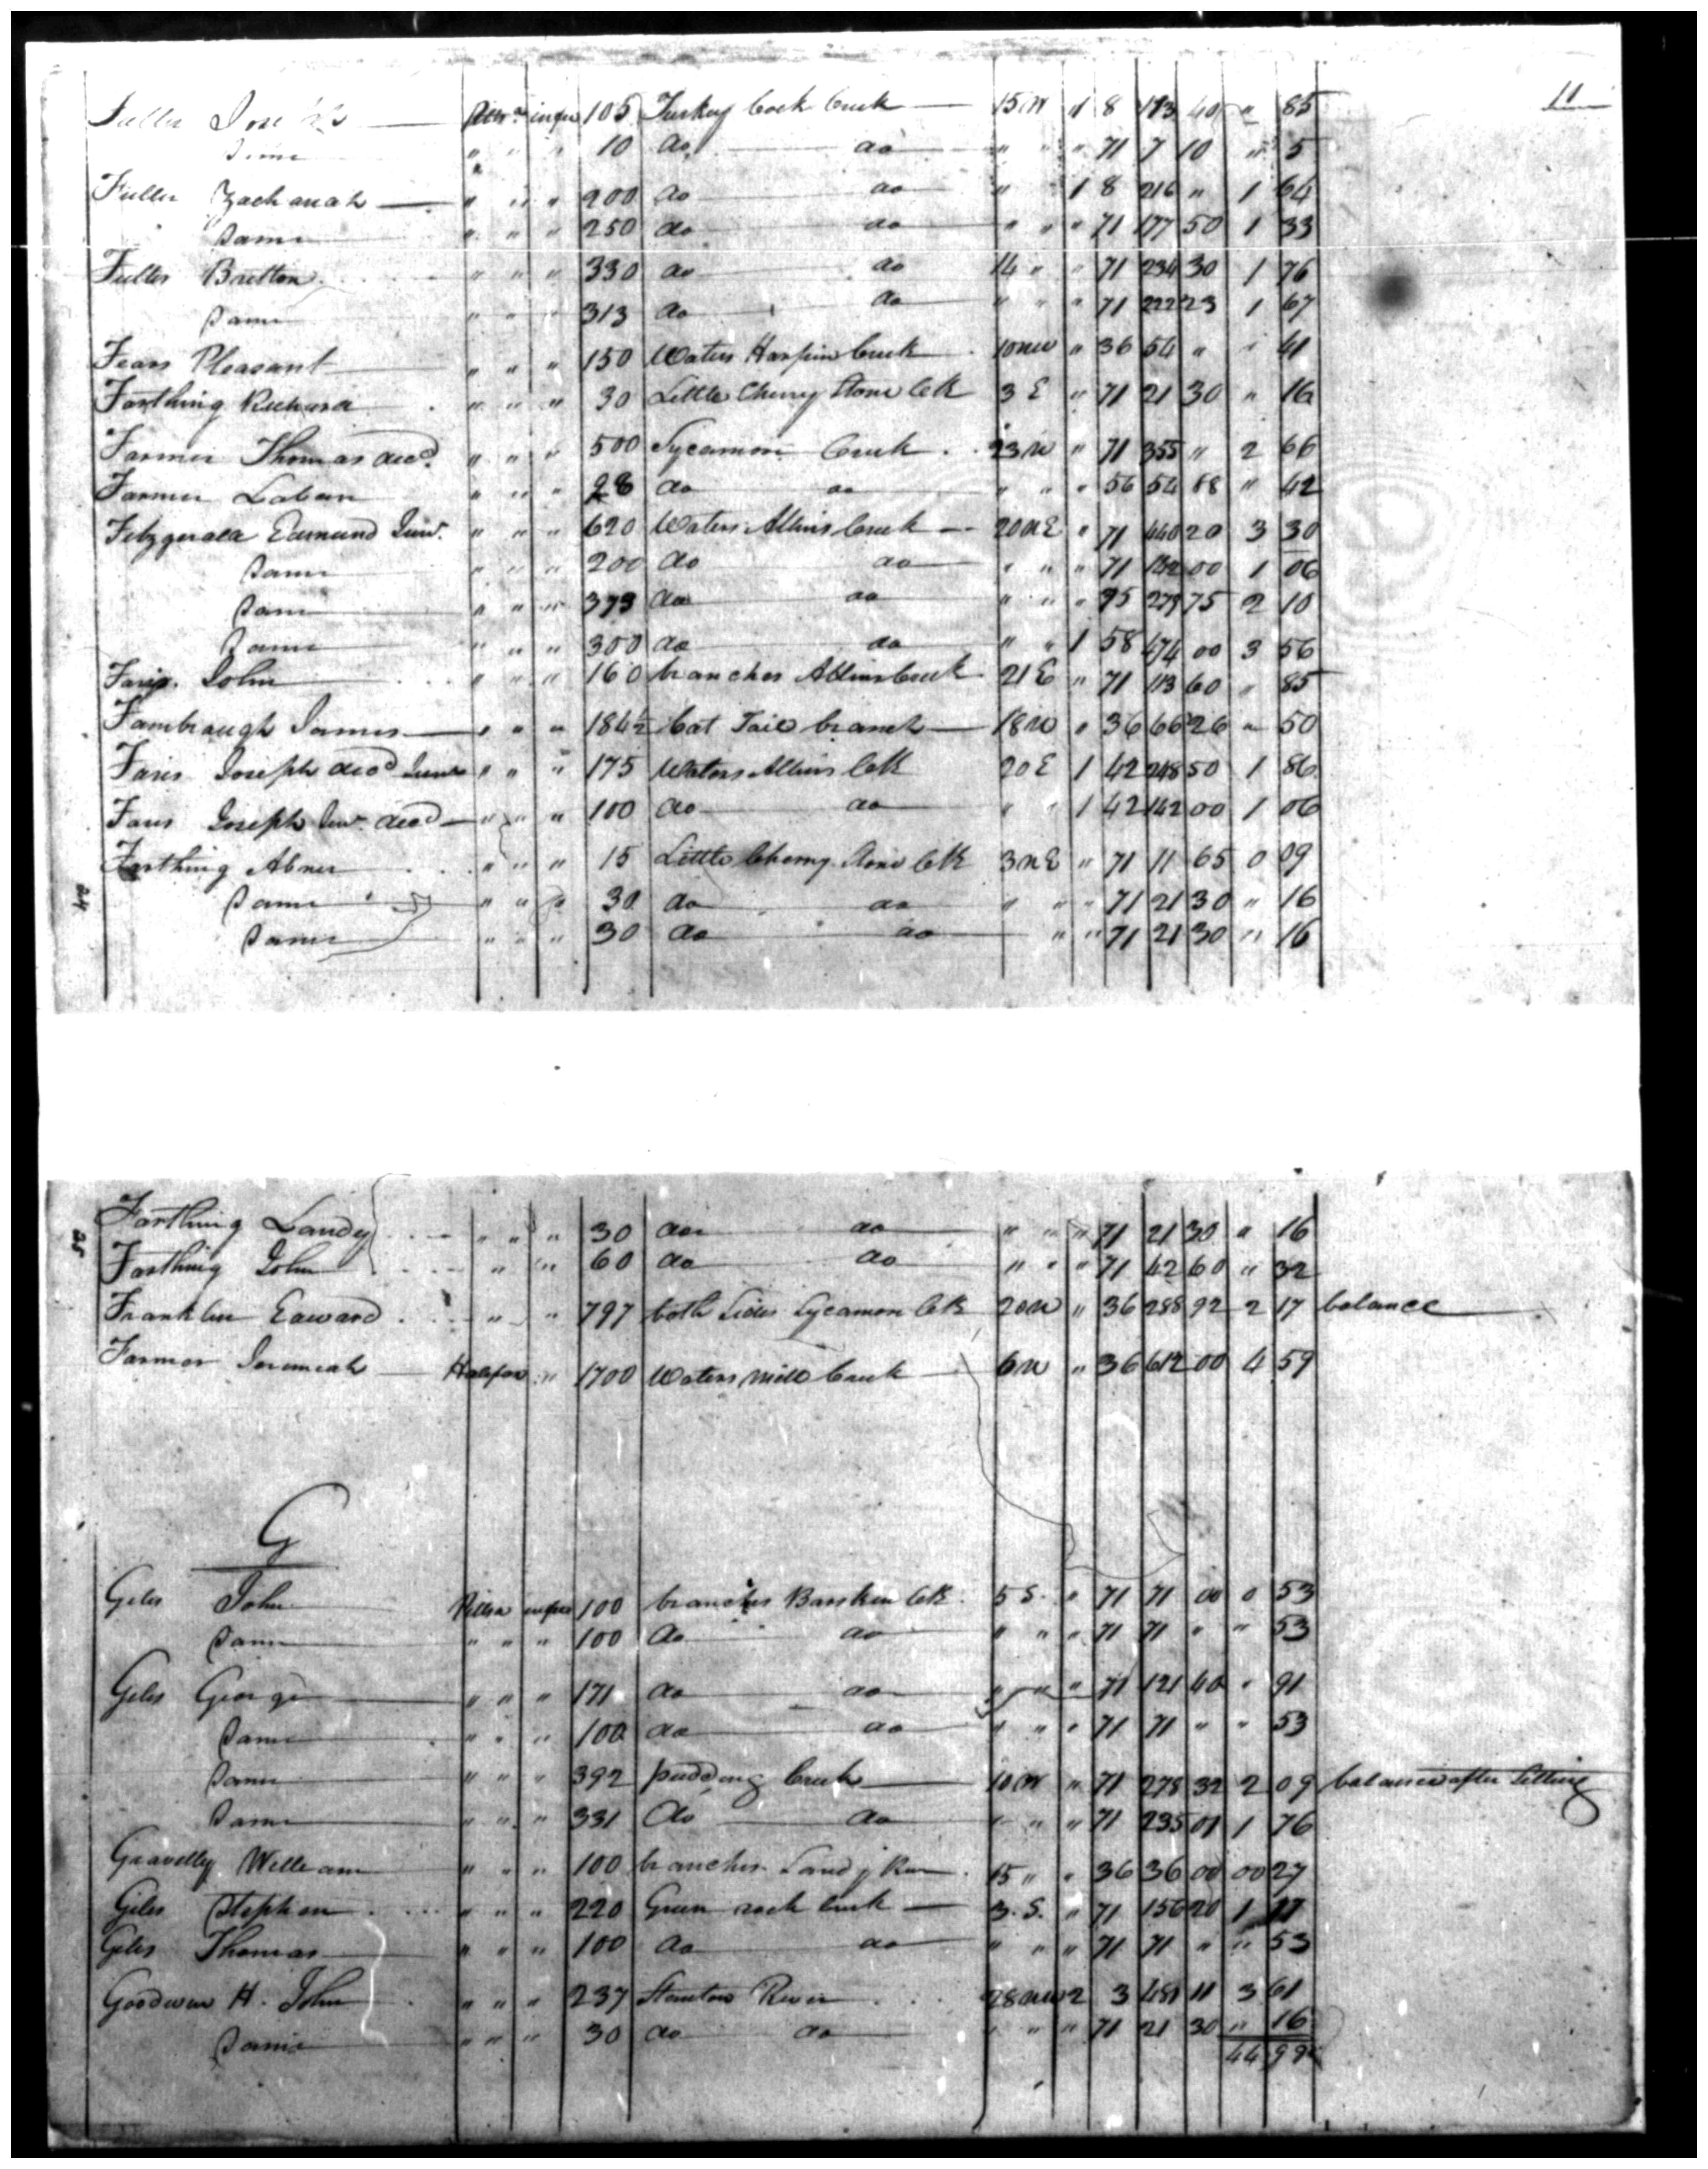 11
Fuller 105 Turkey Cock Creek — 15 W 1 8 113 40 " 85
Same " " " 10 do do " " " 71 7 10 " 5
Fuller Zachariah " " " 200 do do " 1 8 216 " 1 64
Same " " " 250 do do " " " 71 177 50 1 33
Fuller Britton " " " 330 do do 14 " " 71 234 30 1 76
Same " " " 313 do do " " " 71 222 23 1 67
Fears Pleasant " " " 150 Waters Harpin Creek 10 NW " 36 54 " " 41
Farthing Richard " " " 30 Little Cherry Stone Ck 3 E " 71 21 30 " 16
Farmer Thomas decd. " " " 500 Sycamore Creek 23 W " 71 355 " 2 66
Farmer Laban " " " 98 do do " " " 56 54 88 " 42
Fitzgerald Edmund Junr. " " " 620 Waters Allins Creek — 20 NE " 71 440 20 3 30
Same " " " 200 do do " " " 71 142 00 1 06
Same " " " 373 do do " " " 75 279 75 2 10
Same " " " 300 do do " " 1 58 474 00 3 56
Faris John " " " 160 branches Allins Creek 21 E " 71 113 60 " 85
Fambrough James " " " 184½ Cat Tail branch — 18 W " 36 66 26 " 50
Faris Joseph decd " " " 175 Waters Allins Ck 20 E 1 42 248 50 1 86
Faris Joseph Junr. decd — " " " 100 do do " " 1 42 142 00 1 06
Farthing Abner " " " 15 Little Cherry Stone Ck 3 NE " 71 11 65 0 09
24
Same " " " 30 do do " " " 71 21 30 " 16
Same " " " 30 do do " " 71 21 30 " 16
25
Farthing Landy " " " 30 do do " " " 71 21 30 " 16
Farthing John " " 60 do do " " " 71 42 60 " 32
Franklin Edward " " 797 both sides Sycamore Ck 20 W " 36 288 92 2 17 balance
Farmer Jeremiah — Halifax " 1700 Waters Mill Creek 6 W " 36 612 00 4 59
G
Giles John 100 branches Banken Ck 5 S. " 71 71 00 0 53
Same " " " 100 do do " " " 71 71 " " 53
Giles George " " " 171 do do " " " 71 121 40 " 91
Same " " " 100 do do " " " 71 71 " " 53
Same " " " 392 pudding Creek 10 W " 71 278 32 2 09 balance after Selling
Same " " " 331 do do " " " 71 235 01 1 76
Gravelly William " " " 100 branches Sandy River 15 " " 36 36 00 00 27
Giles Stephen " " " 220 Green rock Creek — 3. S. " 71 156 20 1 17
Giles Thomas " " " 100 do do " " " 71 71 " " 53
Goodwin H. John " " " 237 Stanton River 28 NW 2 3 481 11 3 61
Same " " " 30 do do " " " 71 21 30 " 16
44